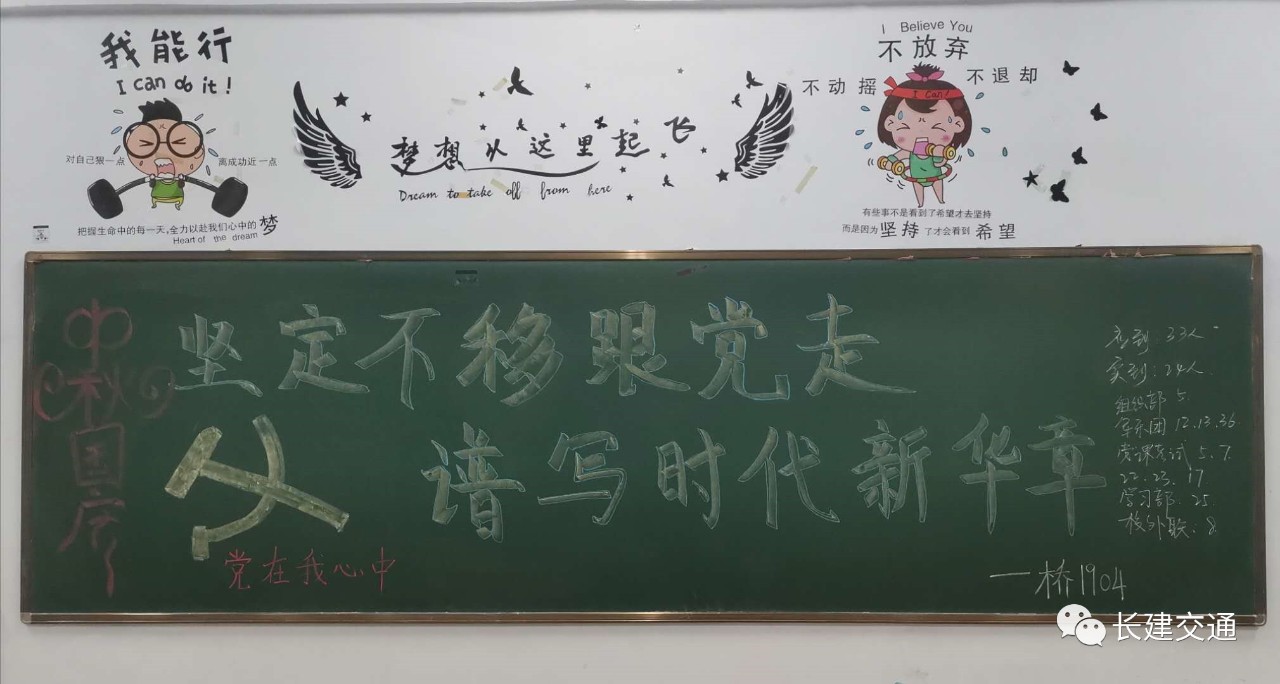 我能行
I can do it!
对自己狠一点
离成功近一点
把握生命中的每一天,全力以赴我们心中的梦
Heart of the dream
梦想从这里起飞
Dream to take off from here
I Believe You
不放弃
不动摇
不退却
I Can!
有些事不是看到了希望才去坚持
而是因为坚持了才会看到希望
中秋国庆
坚定不移跟党走
谱写时代新华章
党在我心中
应到:33人
实到:24人
组织部 5.
12.13.36
党课考试 5.7.
22.23.17
学习部.25.
校外联.8.
一桥1904
长建交通